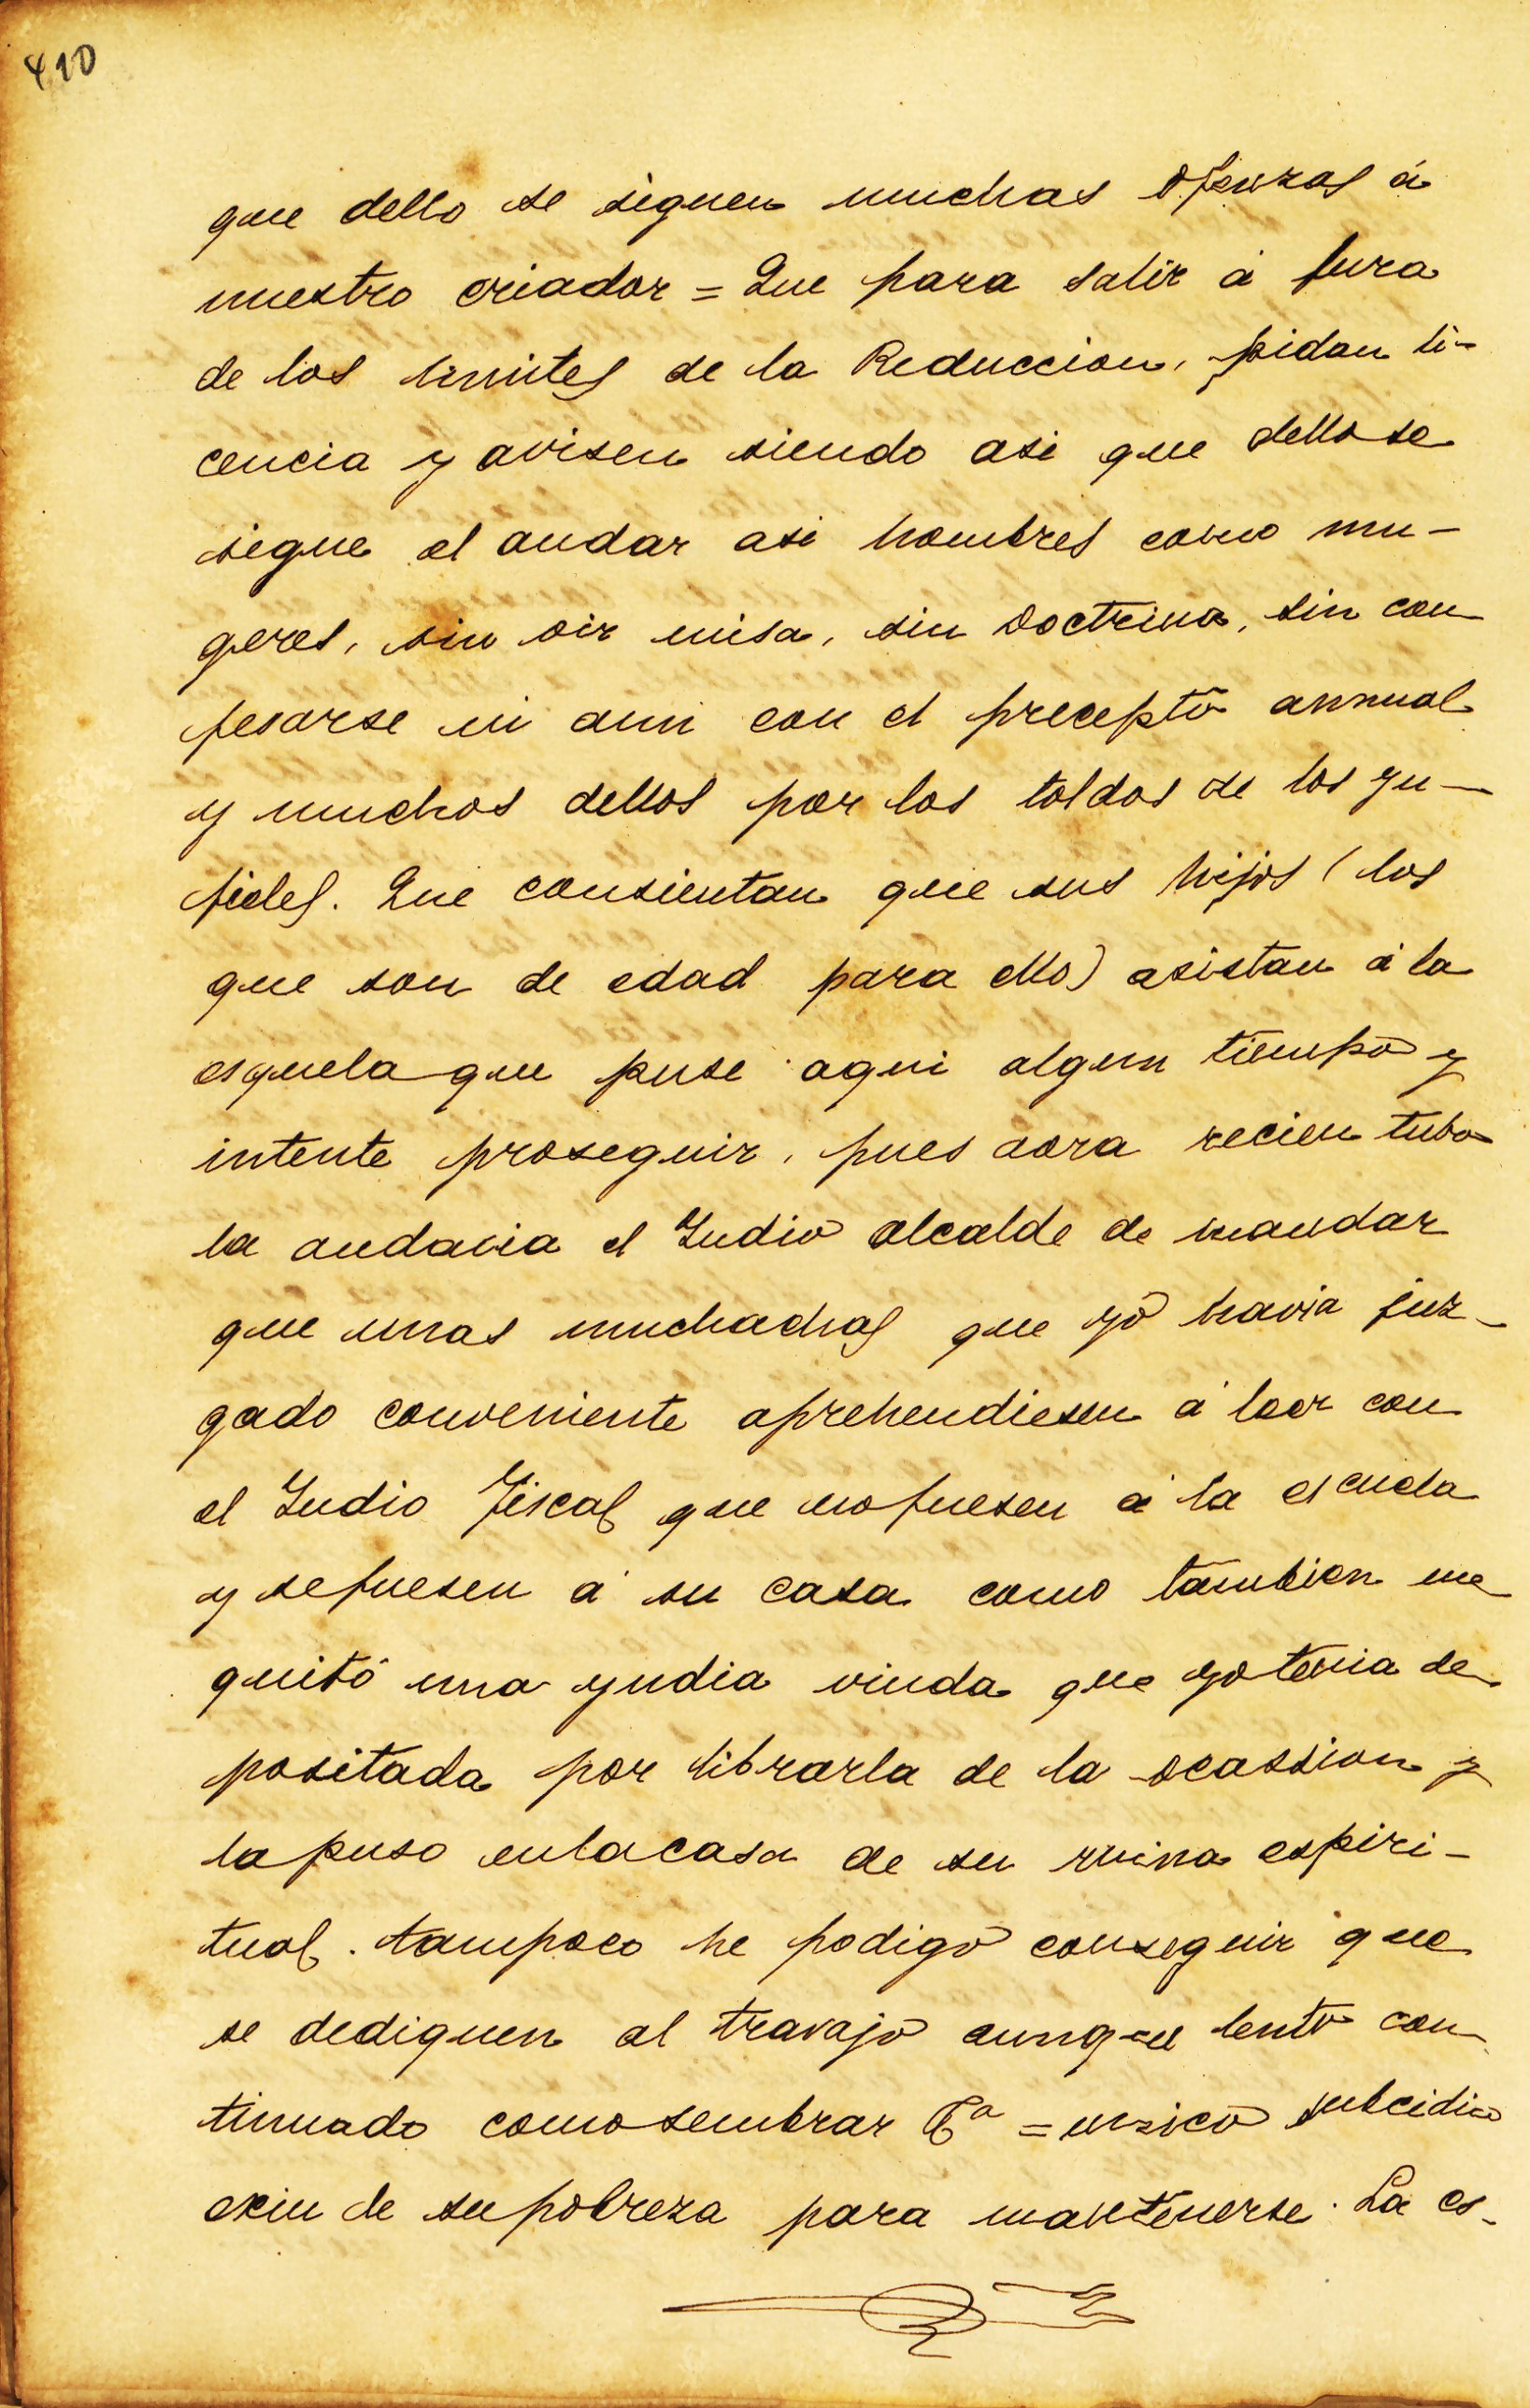 410
que dello se siguen muchas ofenzas á
nuestro criador = Que para salir á fura
de los limites de la Reduccion, pidan li-
cencia y avisen siendo asi que dello se
sigue el andar asi hombres como mu-
geres, sin oir misa, sin Doctrina, sin con
fesarse ni aun con el precepto annual
y muchos dellos por los toldos de los yn-
fieles. Que consientan que sus hijos (los
que son de edad para ello) asistan á la
esquela que puse aqui algun tiempo y
intente proseguir, pues aora recien tubo
la audacia el Indio alcalde de mandar
que unas muchachas que yo havia juz-
gado conveniente aprehendiesen á leer con
el Indio Fiscal que no fuesen á la escuela
y se fuesen á su casa como tambien me
quitó una yndia viuda que yo tenia de
positada por librarla de la ocassion y
la puso en la casa de su ruina espiri-
tual. tampoco he podigo conseguir que
se dediquen al travajo aunque lento con
tinuado como sembrar &a = unico subcidio
de su pobreza para mantenerse. La es-